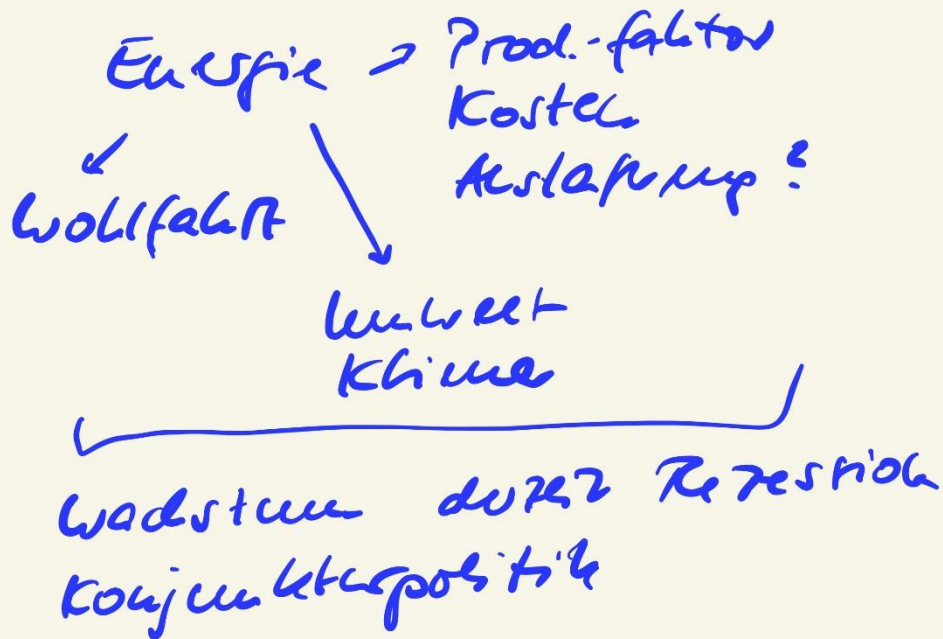 Energie → Prod.-faktor
Kosten
Auslastung?
Wohlfahrt
Umwelt
Klima
Wachstum Rezession
Konjunkturpolitik